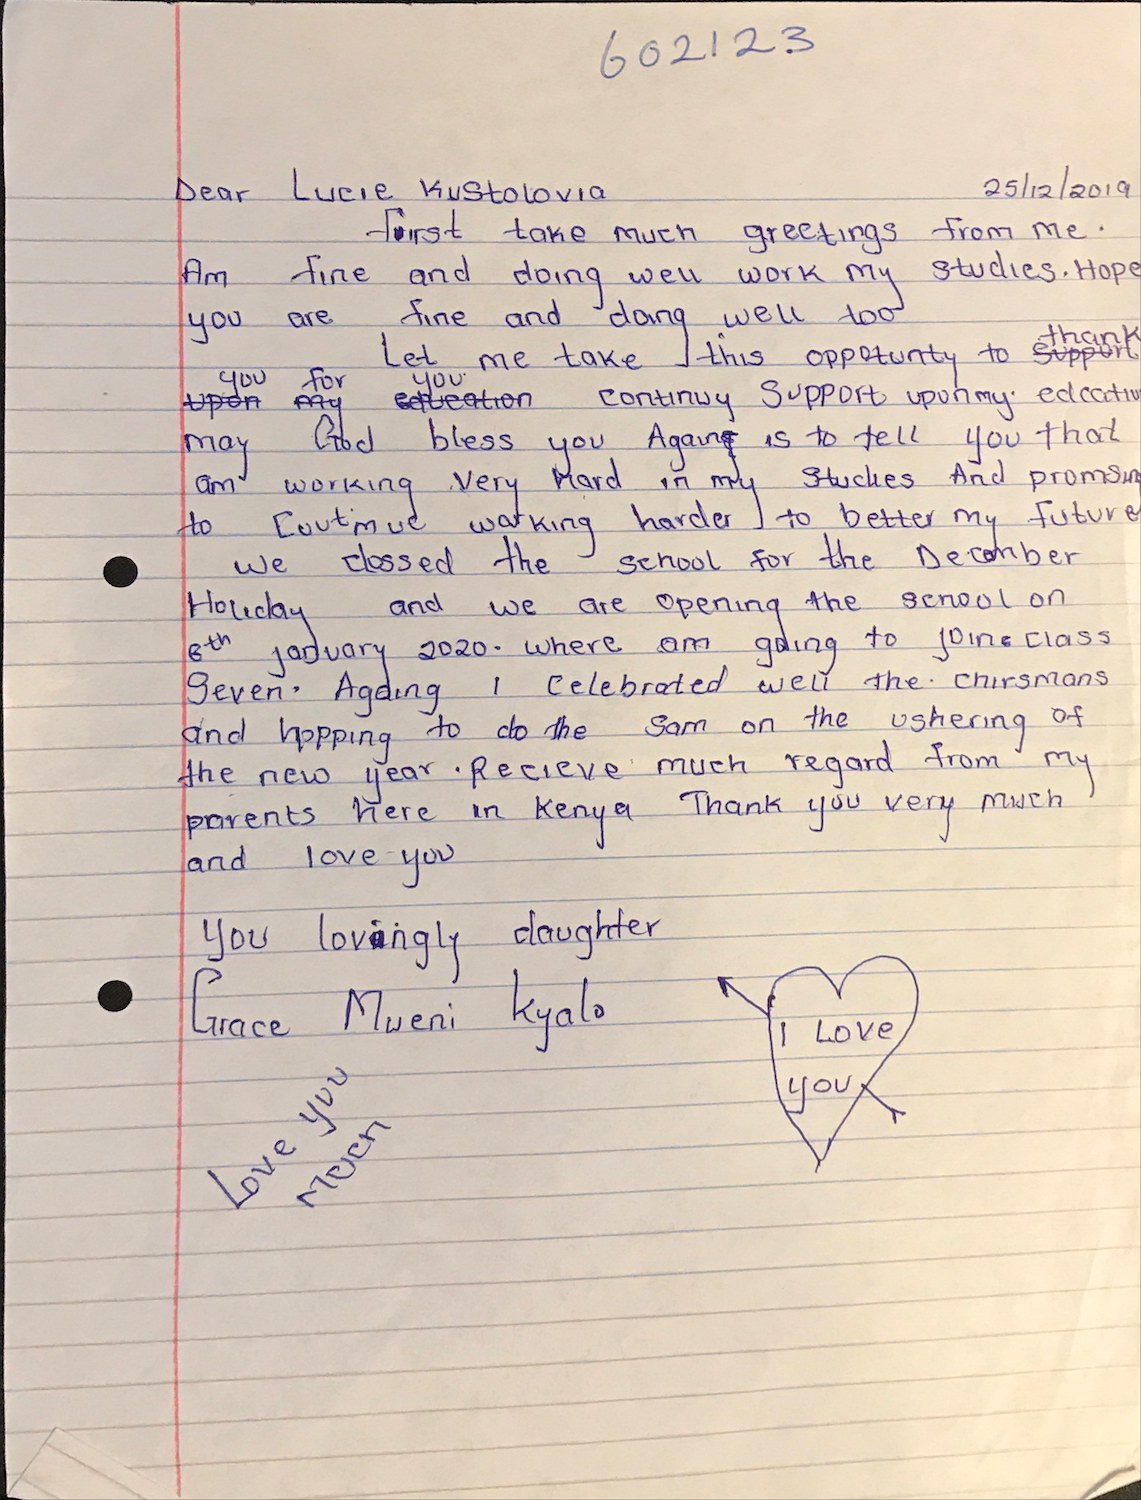 602123
Dear Lucie Kustolovia 25/12/2019
first take much greetings from me.
Am fine and doing well work my studies. Hope
you are fine and doing well too
Let me take this oppotunty to thank
you for you
support
upon my education continuy support upon my
may God bless you Againg is to tell you that
am working very Hard in my studies And promsin
to Coutinue working harder to better my future
we clossed the school for the December
Holiday and we are opening the school on
6th january 2020. where am going to joine class
Seven. Agaiing I celebrated well the chirsmans
and hopping to do the sam on the ushering of
the new year. Recieve much regard from my
parents here in Kenya Thank you very much
and love you
you lovingly daughter
Grace Mueni Kyalo
I Love
you
Love you
much